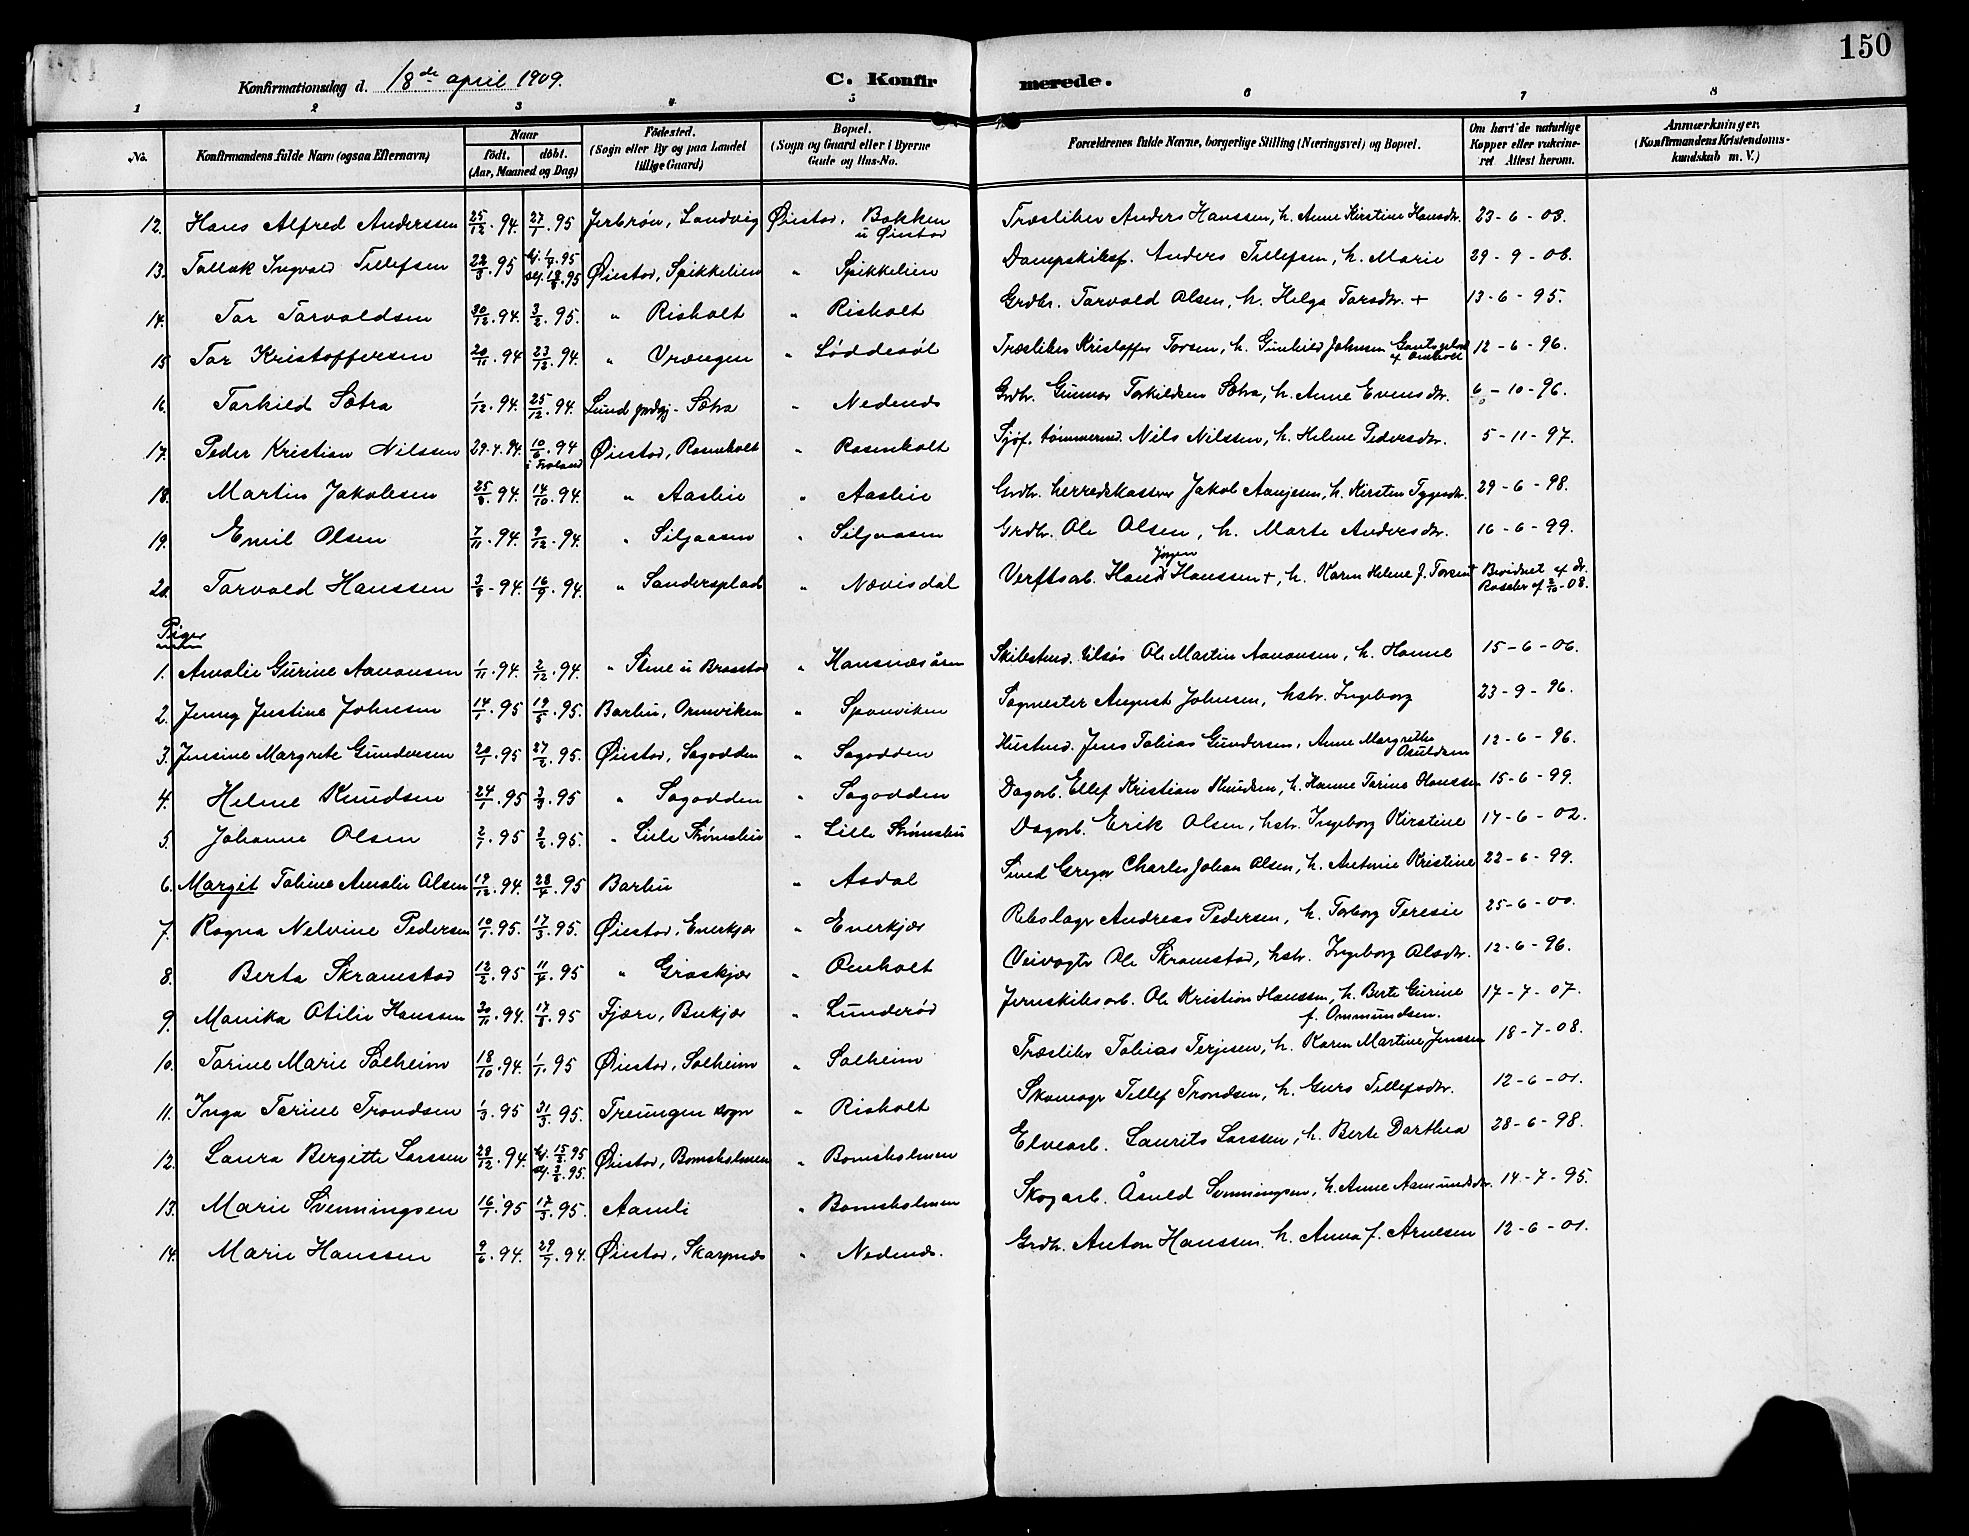 150
Konfirmationsdag d. 18de april 1909.
C. Konfirmerede.
1 2 3 4 5 6 7 8
No. Konfirmandens fulde Navn (ogsaa Efternavn) Naar født. døbt. (Aar, Maaned og Dag) Fødested. (Sogn eller By og paa Landet tillige Gaard) Bopæl. (Sogn og Gaard eller i Byerne Gade og Hus-No. Forældrenes fulde Navne, borgerlige Stilling (Næringsvei) og Bopæl. Om havt de naturlige Kopper eller vakcineret Attest herom. Anmærkninger. (Konfirmandens Kristendomskundskab m. V.)
12. Hans Alfred Anderssen 25/12.94. 27/1.95 Jerbrøn, Landvig Øiestad, Bakken u Øiestad Træskibsr Anders Hanssen, h. Anne Kirstine Hansdr. 23-6-03.
13. Tallak Ingvald Tellefsen 22/3.95 Øiestad, Spikkelien " Spikkelien Dampskibsf. Anders Tellefsen, h. Marie 29-9-06.
14. Tor Torvaldsen 30/12.94. 3/2.95. " Risholt " Risholt Grdbr. Torvald Olsen, h. Helga Torsdr. + 13-6-95.
15 Tor Kristoffersen 20/11.94 23/12.94. " Vrængen " Løddesøl Kristoffer Torsen, h. Gunhild Johnsen 12-6-96.
16. Torkild Sætra 1/12.94. 25/12.94. Lund - Sætra " Nedenes Grdbr. Gunnar Torkildsen Sætra, h. Anne Evensdr. 6-10-96.
17. Peder Kristian Nilssen 29.4.94. 10/6.94 i Froland Øiestad, Rosenholt " Rosenholt Sjøf. tømmermd. Nils Nilssen, h. Helene Pedersdr. 5-11-97.
18. Martin Jakobsen 25/8.94. 14/10.94. " Aaslie " Aaslie Grdbr. herredskasserer Jakob Aanjesen, h. Kirsten Tygesdr. 29-6-98.
19. Emil Olsen 7/11.94. 9/12.94. " Siljaasen " Siljaasen Grdbr. Ole Olsen, h. Marte Andersdr. 16-6-99.
20. Torvald Hanssen 3/8.94. 16/9.94. " Sandersplads " Nævisdal Verftsarb. Hans Jørgen Hanssen +, h. Karen Helene J. Bevidnet af dr. Roscher 2/10-08.
Piger
1. Amalie Gurine Aanonsen 1/11.94. 2/12.94. " Stene u Brosstad " Hansnæsåsen Skibstmd. Ole Martin Aanonsen, h. Hanne 15-6-06.
2. Jenny Justine Johnsen 14/1.95 19/5.95. Barbu, Ormviken " Spanviken Sagmester August Johnsen, hstr. Ingeborg 23-9-96.
3. Jensine Margrete Gundersen 20/1.95 27/2.95. Øiestad, Sagodden " Sagodden Hustmd. Jens Tobias Gundersen, Anne Margrethe Osuldsen 12-6-96.
4. Helene Knudsen 24/1.95 3/3.95 " Sagodden " Sagodden Dagarb. Ellef Kristian Knudsen, h. Hanne Tarine Hanssen 15-6-99.
5. Johanne Olsen 2/1.95 3/2.95. " Lille Strømsbu " Lille Strømsbu Dagarb. Erik Olsen, hstr. Ingeborg Kirstine 17-6-02.
6. Margit Tobine Amalie Olsen 19/12.94. 28/4.95 Barbu " Asdal Charles Johan Olsen, h. Antonie Kristine 22-6-99.
7. Ragna Nelvine Pedersen 10/1.95. 17/3.95. Øiestad, Enerkjær " Enerkjær Rebslagr Andreas Pedersen, h. Torborg Teresie 25-6-00.
8. Berta Skramstad 12/2.95 11/4.95 " Graskjær " Omholt Veivogtr Ole Skramstad, hstr. Ingeborg Olsdr. 12-6-96.
9. Monika Otilie Hanssen 30/11.94. 17/8.95 Fjære, Bukjær " Lunderød Jernskibsarb. Ole Kristian Hanssen, h. Berte Gurine f. Ommundsen. 17-7-07.
10. Tarine Marie Solheim 18/10.94. 1/1.95 Øiestad, Solheim " Solheim Tobias Terjesen, h. Karen Martine Jenssen 18-7-08.
11. Inga Tarine Trondsen 1/3.95 31/3.95. Treungen sogn " Risholt Skomagr Tellef Trondsen, h. Guro Tellefsdr. 12-6-01.
12. Laura Bergitte Larssen 28/12.94. Øiestad, Bomsholmen " Bomsholmen Elvearb. Laurits Larssen, h. Berte Dorthea 28-6-98.
13. Marie Svenningsen 16/1.95 17/3.95. Aamli " Bomsholmen Skogarb. Åsuld Svenningsen, h. Anne Aamundsdr. 14-7-95.
14. Marie Hanssen 9/6.94. 29/7.94. Øiestad, Skarpnæs " Nedenæs. Grdbr. Anton Hanssen, h. Anna f. Arnesen 12-6-01.